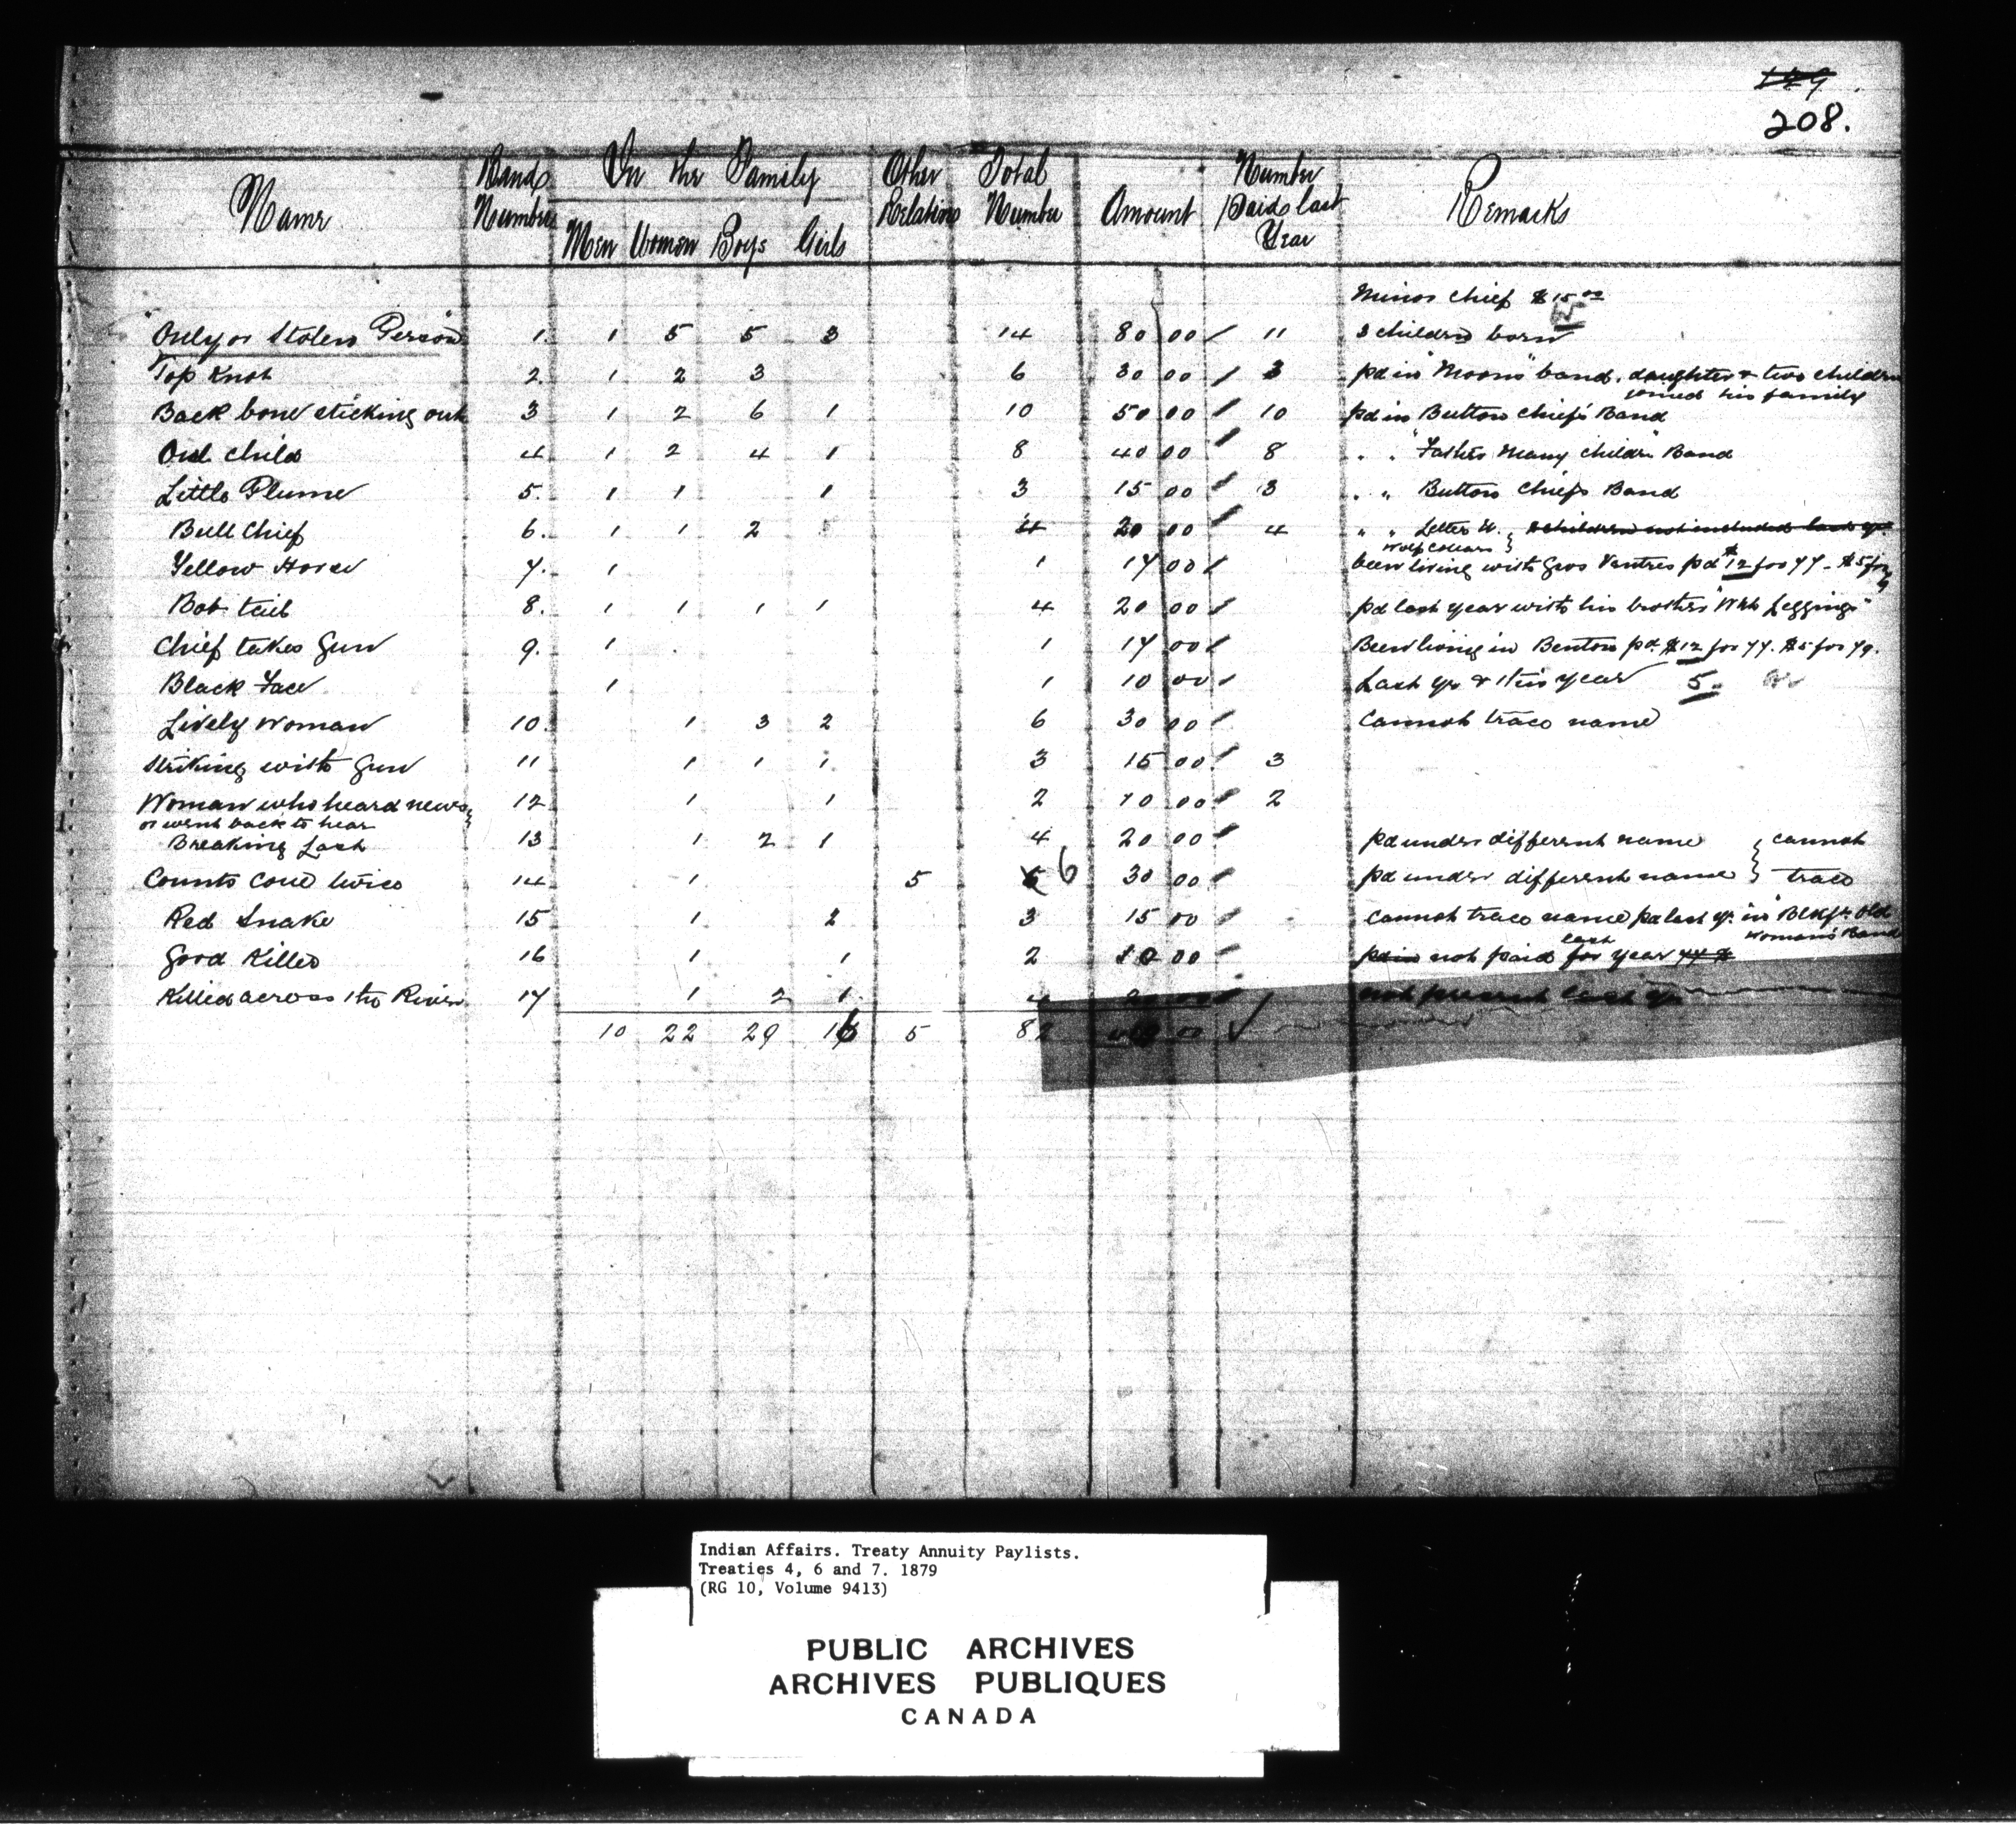 149
208.
Name Band Number In the Family Men Women Boys Girls Other Relations Total Number Amount Number Paid last Year Remarks
Minor Chief $15.00
"Only or Stolen Person" 1. 1 5 5 3 14 80 00 11 3 children born
Top Knot 2. 1 2 3 6 30 00 3 pd in "Moons" band. daughter & two children
joined his family
Back bone sticking out 3 1 2 6 1 10 50 00 10 pd in Button Chief's Band
Owl Child 4 1 2 4 1 8 40 00 8 " " "Father Many Children" Band
Little Plume 5. 1 1 1 3 15 00 3 " " Button Chiefs Band
Bull Chief 6. 1 1 2 4 20 00 4 " " Letter H. } 2 children not included last yr.
Wolf Collars
Yellow Horse 7. 1 1 17 00 been living with Gros Ventres pd $12 for 77 - $5 for
Bob tail 8. 1 1 1 1 4 20 00 pd last year with his brother "Wht Leggings"
Chief takes Gun 9. 1 1 17 00 Been living in Benton pd. $12 for 77. $5 for 79.
Black Face 1 1 10 00 Last yr & this year 5.
Lively Woman 10. 1 3 2 6 30 00 Cannot trace name
Striking with Gun 11 1 1 1 3 15 00 3
Woman who heard news 12 1 1 2 10 00 2
or went back to hear
Breaking Lash 13 1 2 1 4 20 00 pd under different name } cannot
Counts Coue twice 14 1 5 6 30 00 pd under different name } trace
Red Snake 15 1 2 3 15 00 Cannot trace name pd last yr. in "Blkft Old
Woman's" Band
Good Killer 16 1 1 2 10 00 pd in not paid last for year 77 &
Killed across the River 17 1 2 1 4 20 00 not present last yr
10 22 29 16 5 82 00
Indian Affairs. Treaty Annuity Paylists.
Treaties 4, 6 and 7. 1879
(RG 10, Volume 9413)
PUBLIC ARCHIVES
ARCHIVES PUBLIQUES
CANADA